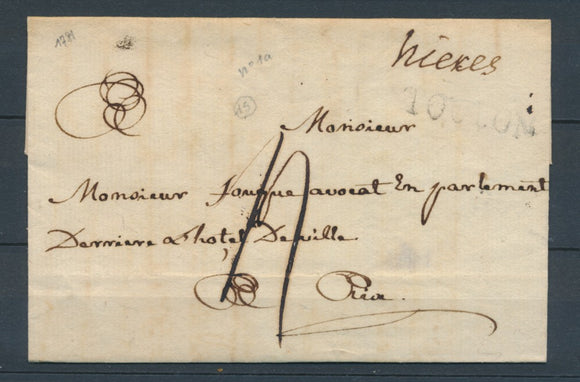 1781
hieres
n° 1a
15
TOULON
Monsieur
Monsieur Jouque avocat En parlement
Derriere a L'hotel De ville
A Aix
4